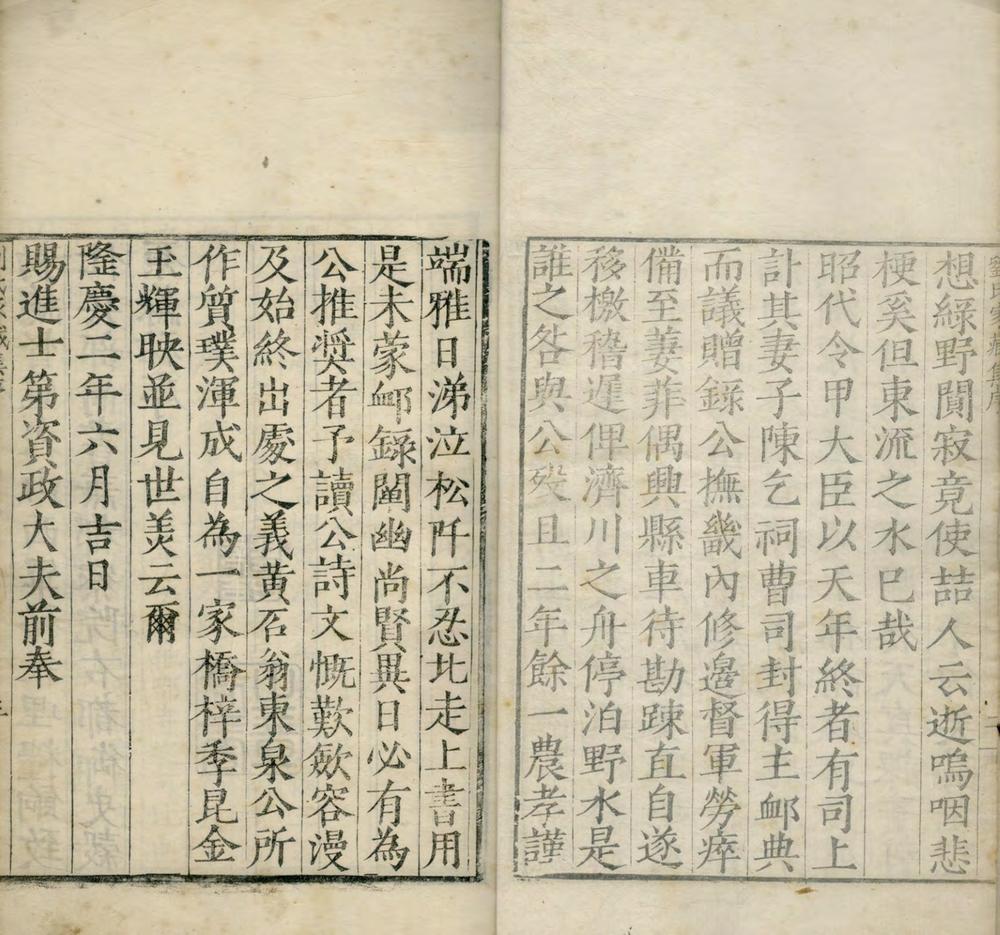 劉氏家藏集序
想綠野闃寂竟使喆人云逝嗚咽悲
梗奚但東流之水巳哉
昭代令甲大臣以天年終者有司上
計其妻子陳乞祠曹司封得主卹典
而議贈錄公撫畿內修邊督軍勞瘁
備至萋菲偶興縣車待勘踈直自遂
移檄稽遲俾濟川之舟停泊野水是
誰之咎與公歿且二年餘一農孝謹
端雅日涕泣松阡不忍北走上書用
是未蒙卹錄闡幽尚賢異日必有為
公推奨者予讀公詩文慨歎歛容漫
及始終出處之義黃石翁東泉公所
作質璞渾成自為一家橋梓季昆金
玉輝映並見世美云爾
隆慶二年六月吉日
賜進士第資政大夫前奉